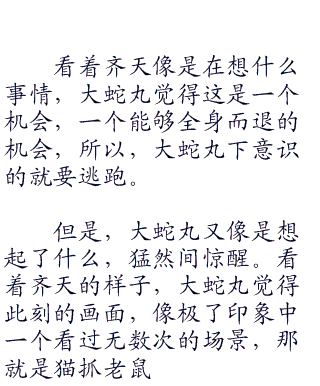 看着齐天像是在想什么
事情，大蛇丸觉得这是一个
机会，一个能够全身而退的
机会，所以，大蛇丸下意识
的就要逃跑。
但是，大蛇丸又像是想
起了什么，猛然间惊醒。看
着齐天的样子，大蛇丸觉得
此刻的画面，像极了印象中
一个看过无数次的场景，那
就是猫抓老鼠